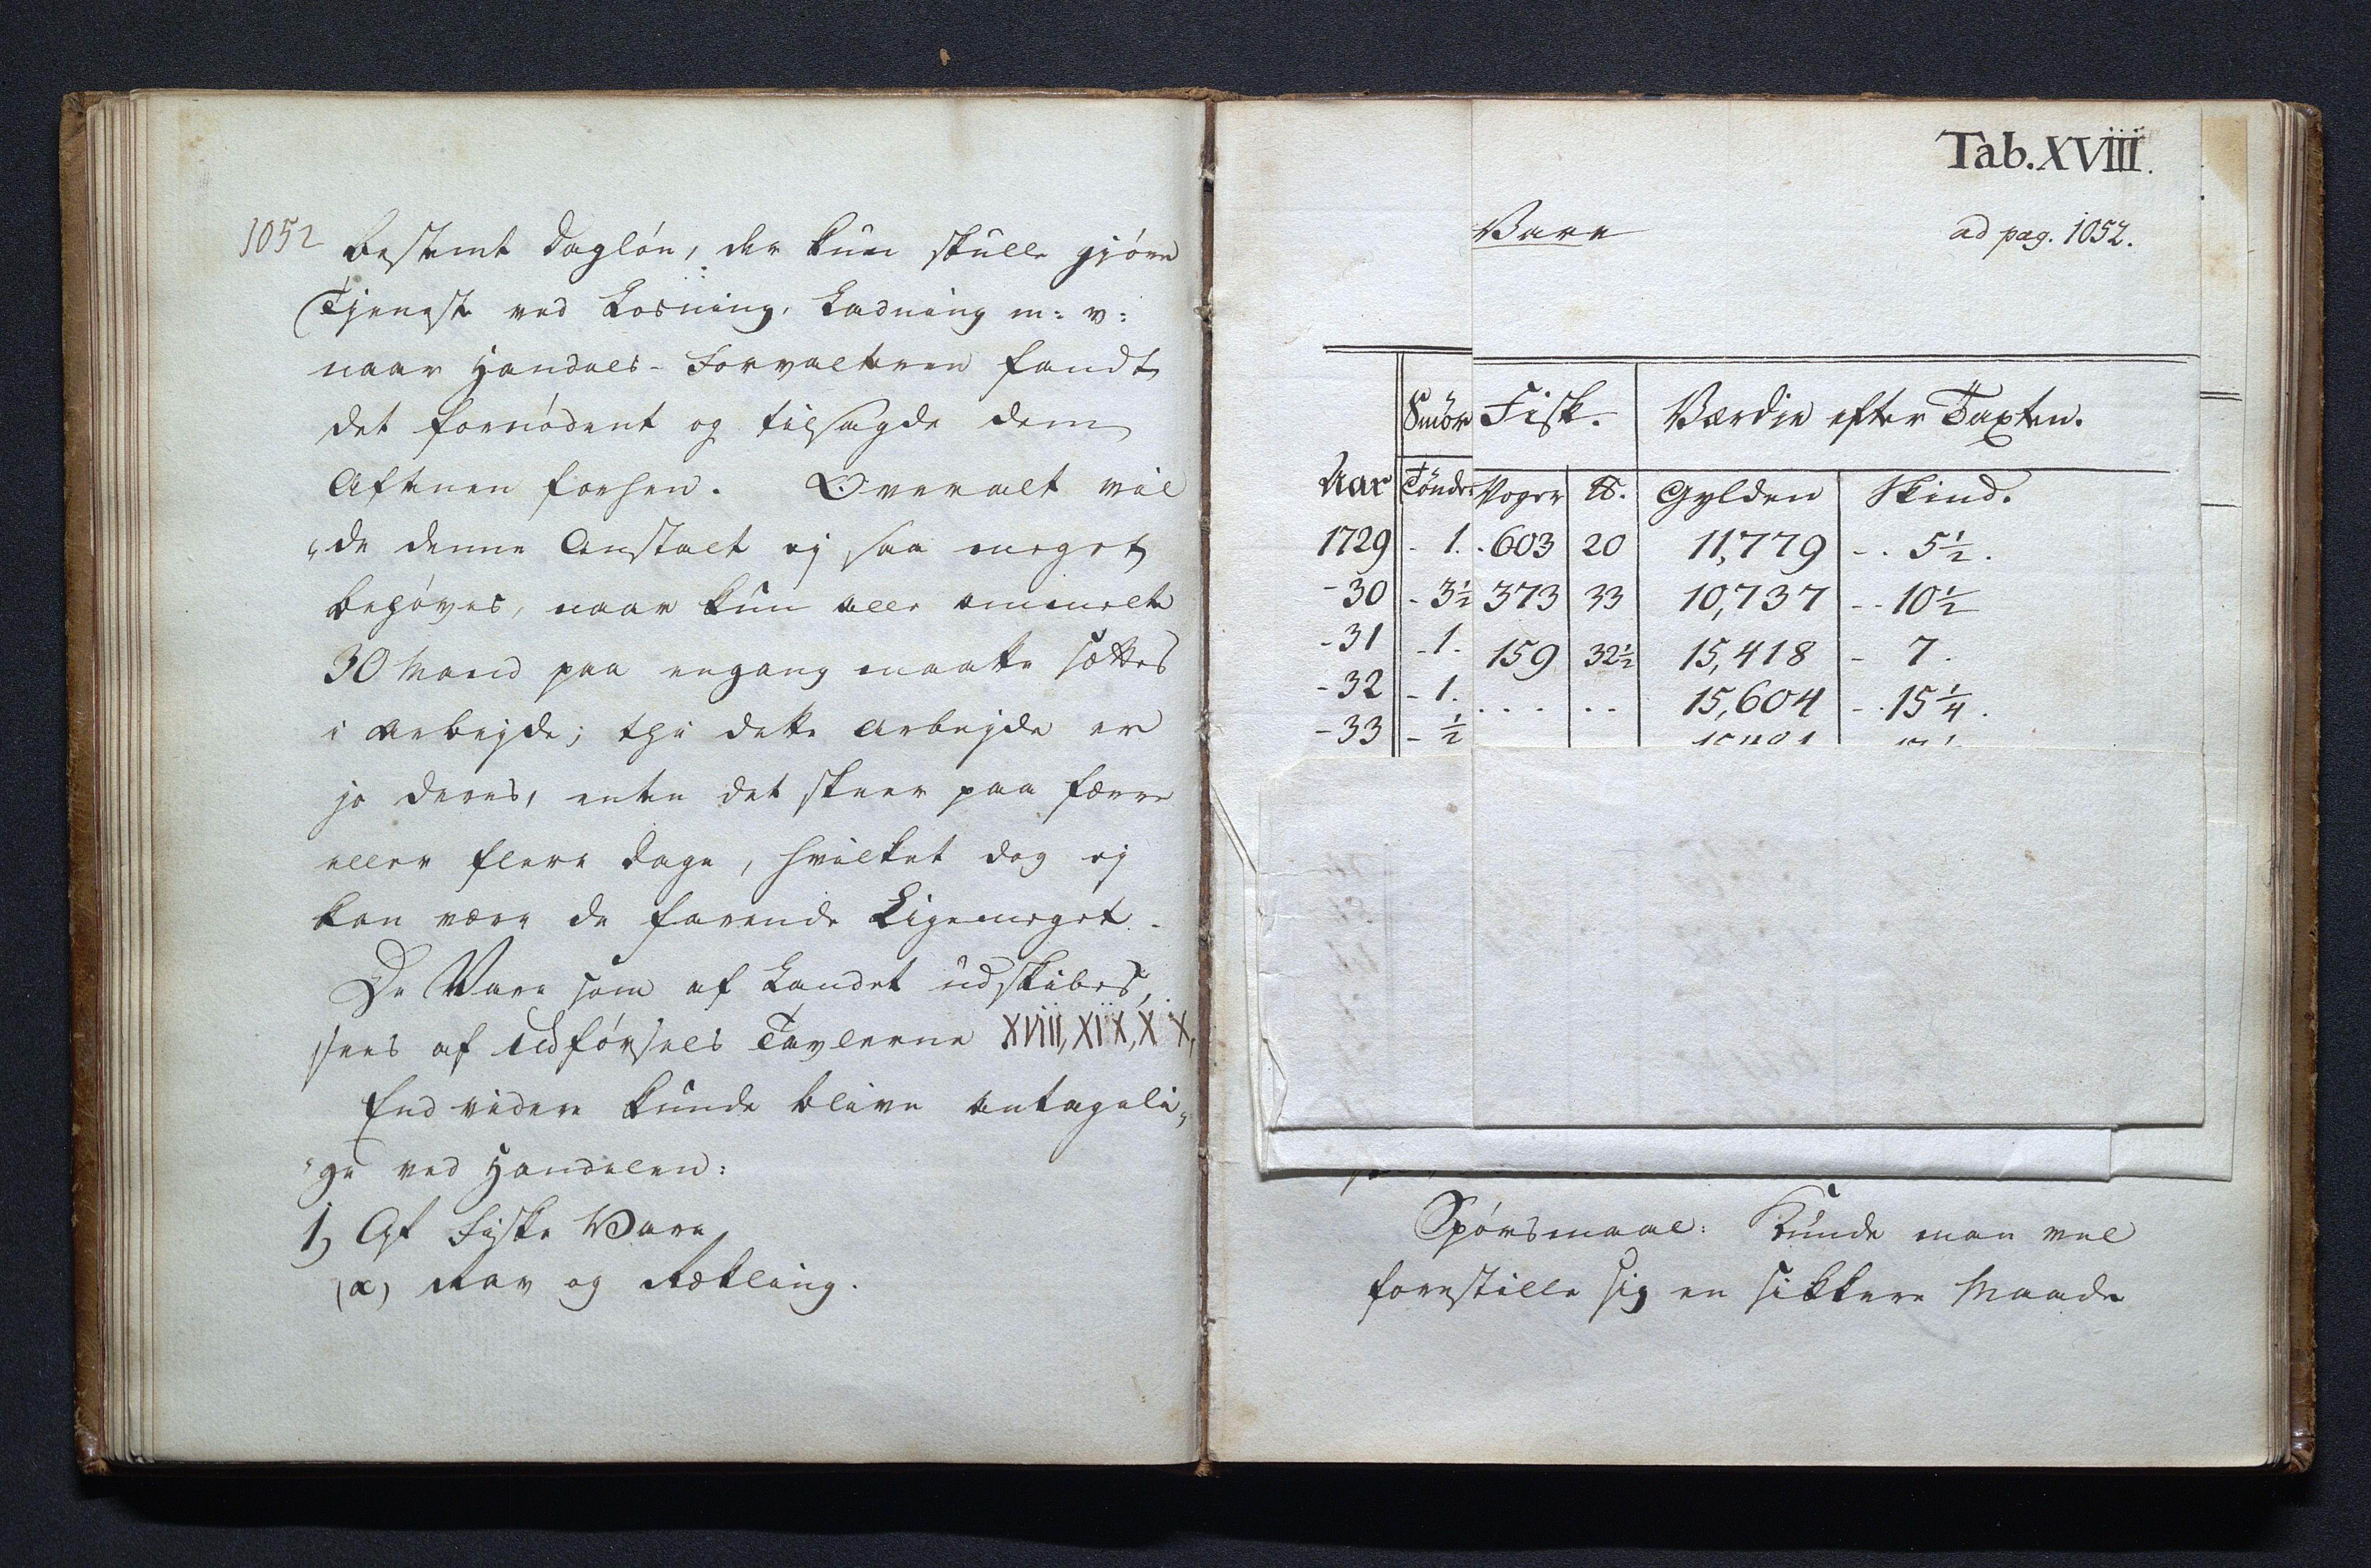 1052
bestemt Daglón, der kun skulle gjóre
Tjeneste ved Losning, Ladning m: v:
naar Handels-Forvalteren fandt
det fornódent og tilsagde dem
Aftenen forhen. Overalt vil
"de denne Anstalt ej saa meget
behóves, naar kun alle ommelte
30 Mand paa engang maatte sættes
i Arbejde; thi dette Arbejde er
jo deres, enten det skeer paa færre
eller flere Dage, hvilket dog ej
kan være de farende Ligemeget.
De Vare som af Landet udskibes,
sees af Udförsels Tavlerne XVIII, XIX, XX,
End videre kunde blive antageli„
"ge ved Handelen:
1) Af Fiske Vare
(α) Rav og Rækling.
Tab. XVIII.
Vare ad pag. 1052.
Smör Fisk. Værdie efter Taxten.
Aar Tönder Voger ℔. Gylden Skind.
1729 - 1. 603 20 11,779 - . 5½.
- 30 - 3½ 373 33 10,737 - - 10½
- 31 - 1. 159 32½ 15,418 - 7.
- 32 - 1. . . . . . 15,604 - . 15¼.
- 33 - ½
Spórsmaal: Kunde man vel
forestille sig en sikkere Maade